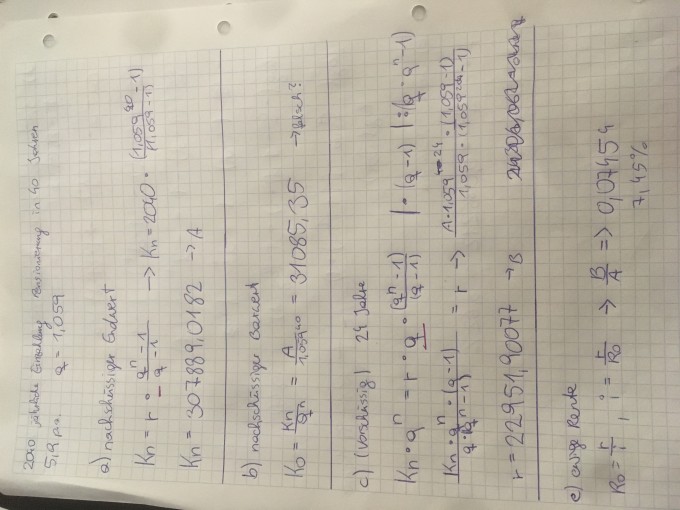 2040 jährliche Einzahlung Pensionierung in 40 Jahren
5,9 p.a. q = 1,059
a) nachschüssiger Endwert
Kn = r · (q^n - 1)/(q - 1) → Kn = 2040 · (1,059^40 - 1)/(1,059 - 1)
Kn = 307889,0182 → A
b) nachschüssiger Barwert
K0 = Kn/q^n = A/1,059^40 = 31085,35 → falsch?
c) (Vorschüssig) 24 Jahre
Kn · q^n = r · q · (q^n - 1)/(q - 1) | · (q - 1) | : (q · q^n - 1)
Kn · q^n · (q - 1)/(q · q^n - 1) = r → A · 1,059^24 · (1,059 - 1)/(1,059 · (1,059^24 - 1)
r = 22951,90077 → B
e) ewige Rente
R0 = r/i, i = r/R0 → B/A => 0,07454
7,45%